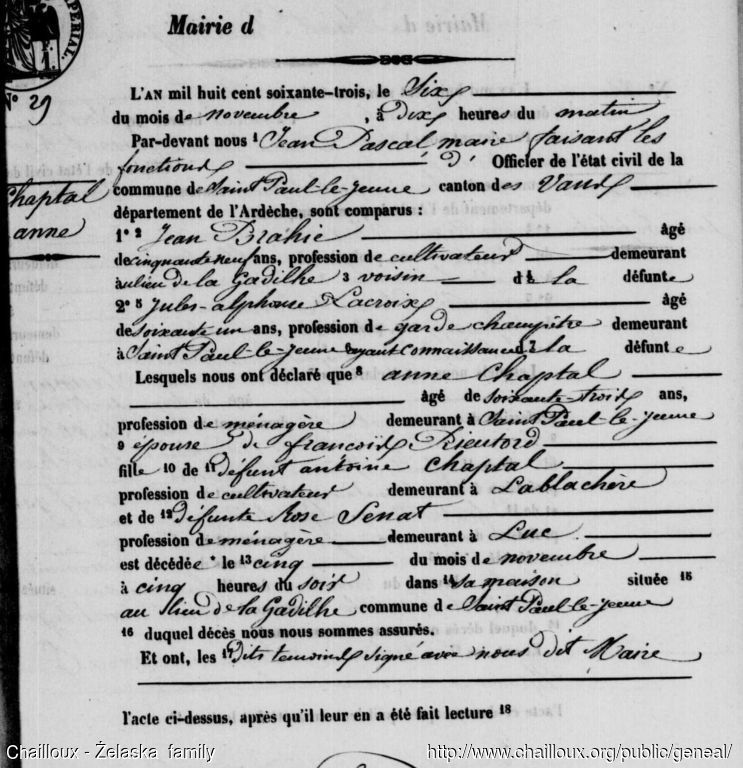 PERIAL.
Mairie d
N° 29
L'AN mil huit cent soixante-trois, le Six
du mois de novembre, à dix heures du matin
Par-devant nous 1 Jean Pascal maire faisant les
fonctions d' Officier de l'état civil de la
Chaptal
anne
commune de Saint Paul-le-jeune canton des Vans
département de l'Ardèche, sont comparus :
1° 2 Jean Brahic âgé
de cinquante neuf ans, profession de cultivateur demeurant
à lieu de la Gadilhe 3 voisin d 4 la défunte
2° 5 Jules-alphonse Lacroix âgé
de soixante un ans, profession de garde champêtre demeurant
à Saint Paul-le-jeune ayant connaissance d 7 la défunte
Lesquels nous ont déclaré que 8 anne Chaptal
âgé de soixante-trois ans,
profession de ménagère demeurant à Saint Paul-le-jeune
9 épouse de françois Rieutord
fille 10 de 11 défunt antoine Chaptal
profession de cultivateur demeurant à Lablachère
et de 12 défunte Rose Senat
profession de ménagère demeurant à Luc
est décédée * le 13 cinq du mois de novembre
à cinq heures du soir dans 14 sa maison située 15
au lieu de la Gadilhe commune de Saint Paul-le-jeune
16 duquel décès nous nous sommes assurés.
Et ont, les 17 dits temoins signé avec nous dit Maire
l'acte ci-dessus, après qu'il leur en a été fait lecture 18
Chailloux - Żelaska family
http://www.chailloux.org/public/geneal/